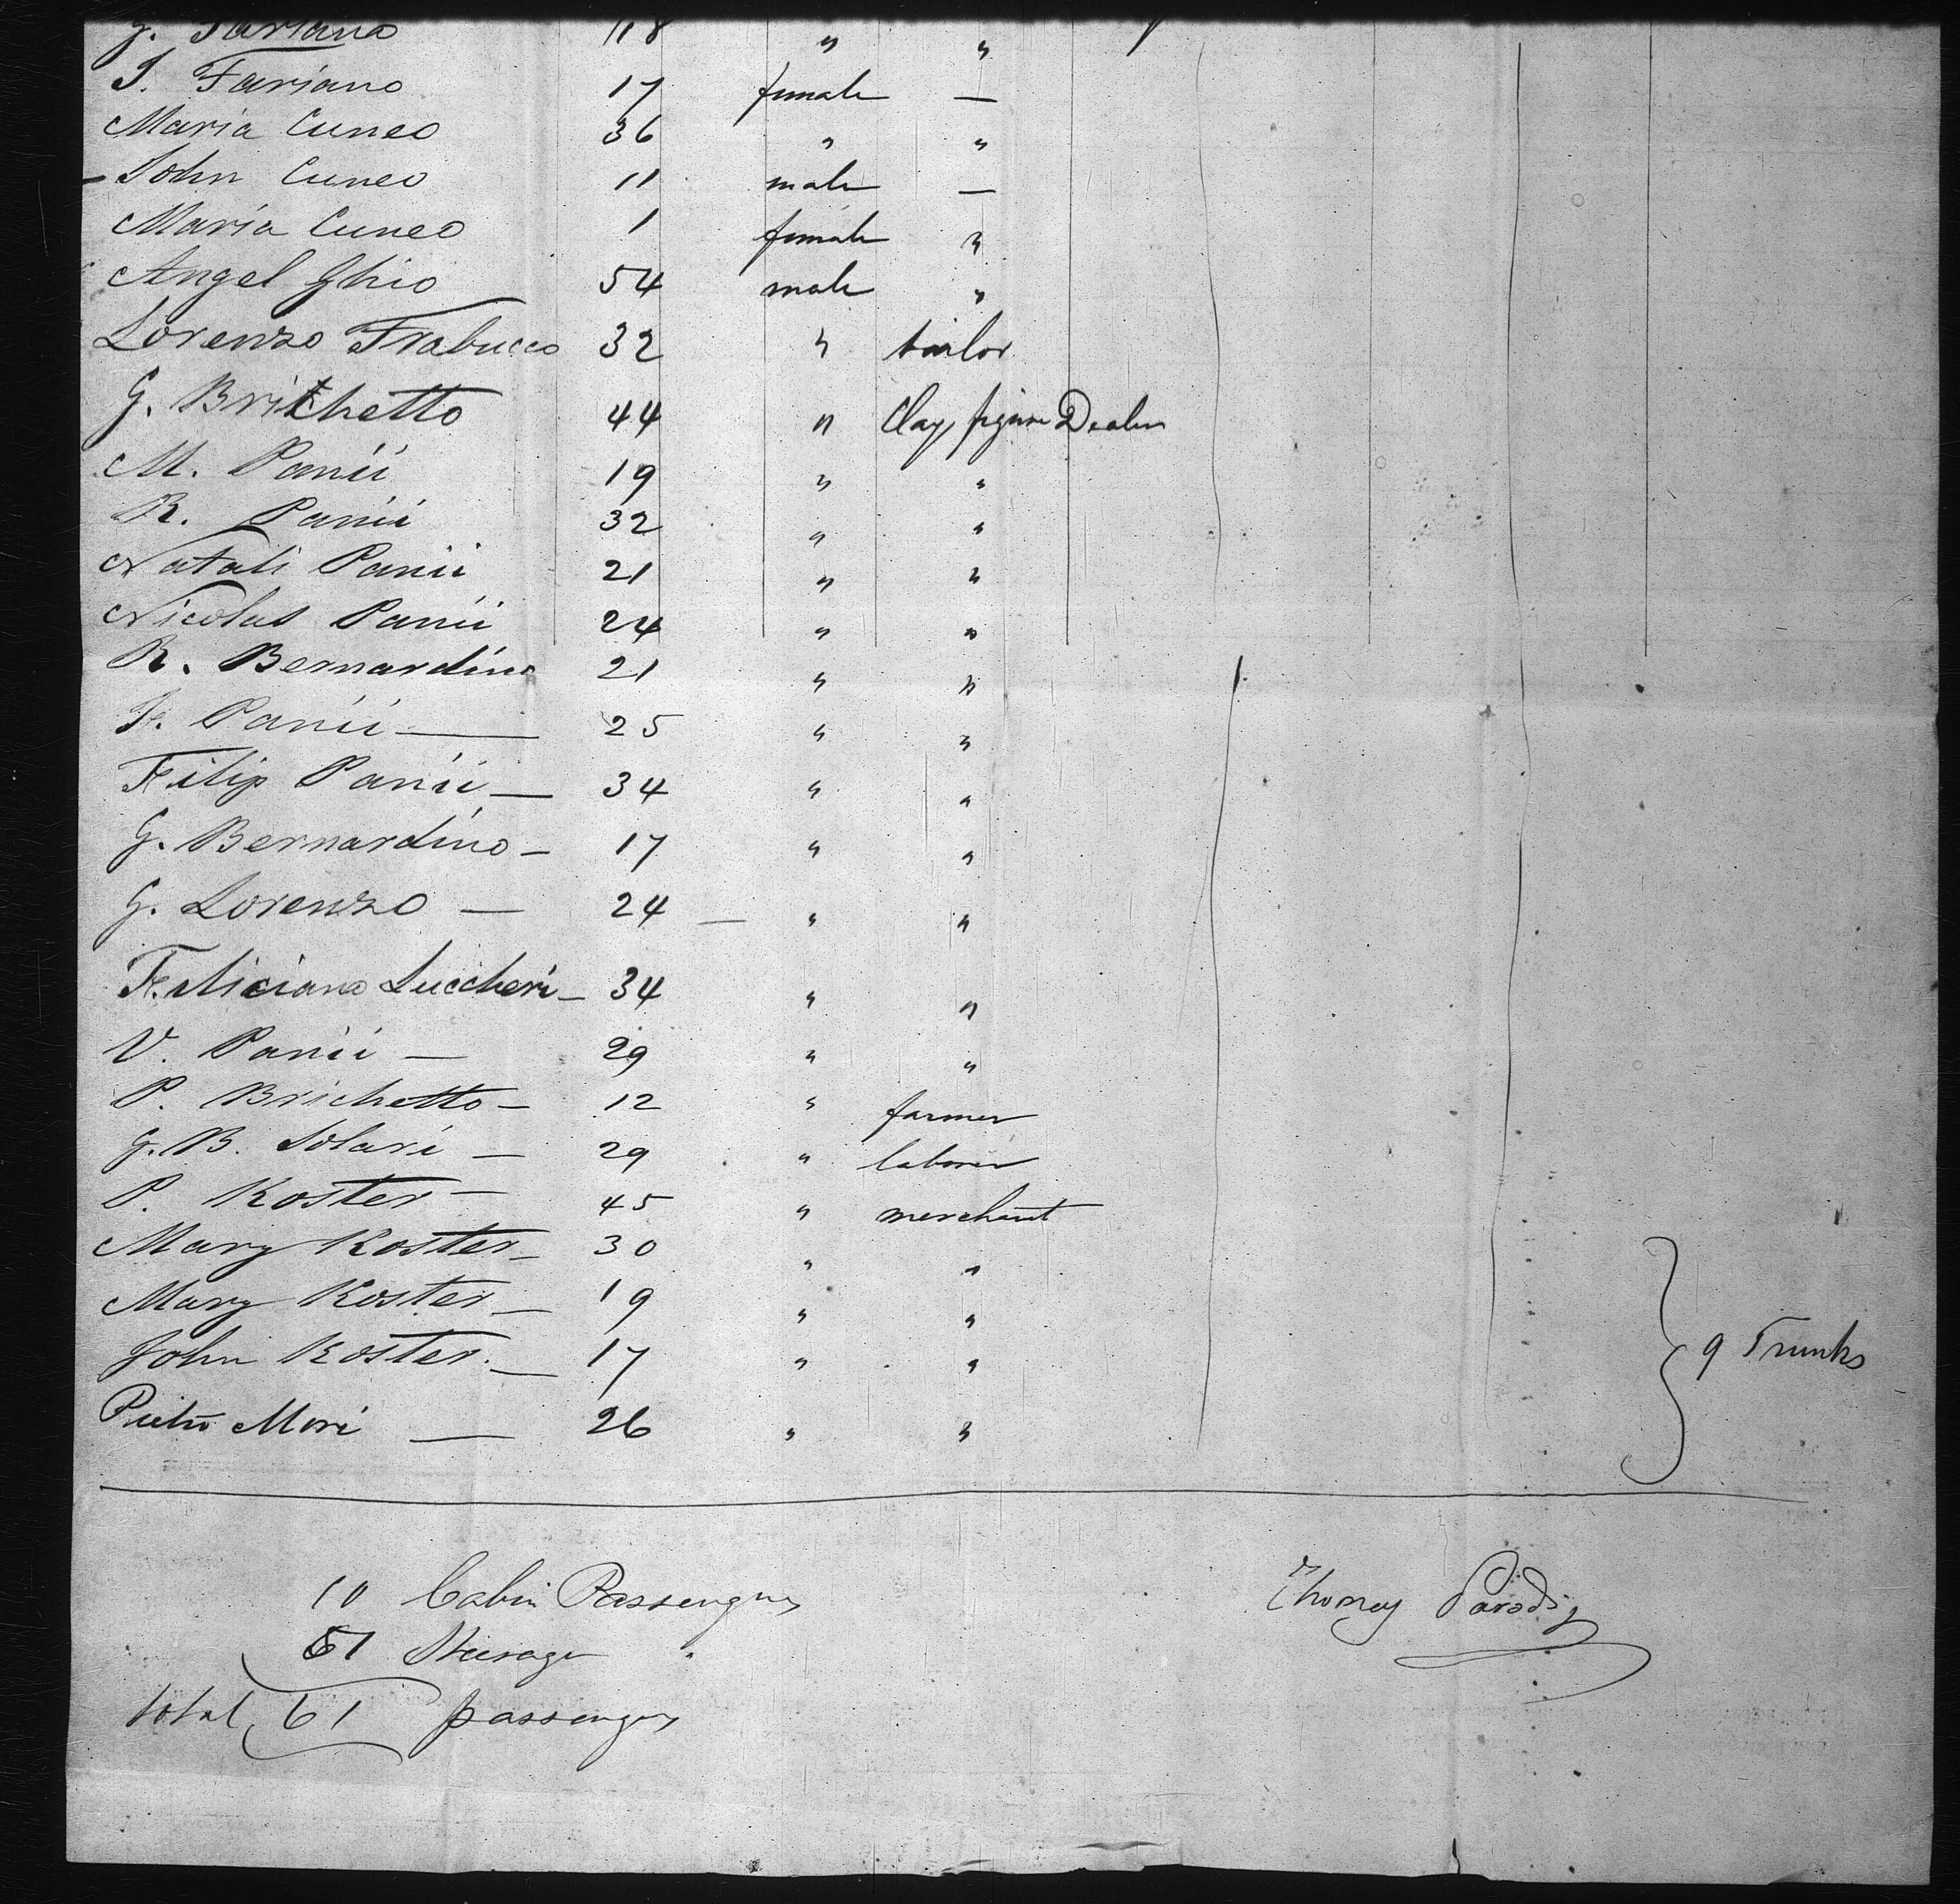 G. Fariano 18 " "
I. Fariano 17 female —
Maria Cuneo 36 " "
John Cuneo 11 male —
Maria Cuneo 1 female "
Angel Ghio 54 male "
Lorenzo Frabucco 32 " tailor
G. Britchetto 44 " Clay figure Dealer
M. Panii 19 " "
R. Panii 32 " "
Natali Panii 21 " "
Nicolas Panii 24 " "
R. Bernardino 21 " "
F. Panii — 25 " "
Filip Panii — 34 " "
G. Bernardino — 17 " "
G. Lorenzo — 24 — " "
Feliciano Luccheri — 34 " "
V. Panii — 29 " "
P. Brichetto — 12 " farmer
G. B. Solari — 29 " laborer
P. Koster — 45 " merchant
Mary Koster — 30 " "
Mary Koster — 19 " "
John Koster — 17 " "
9 Trunks
Pietro Mori — 26 " "
10 Cabin Passengers
51 Steerage "
total 61 passengers
Thomas Parodi